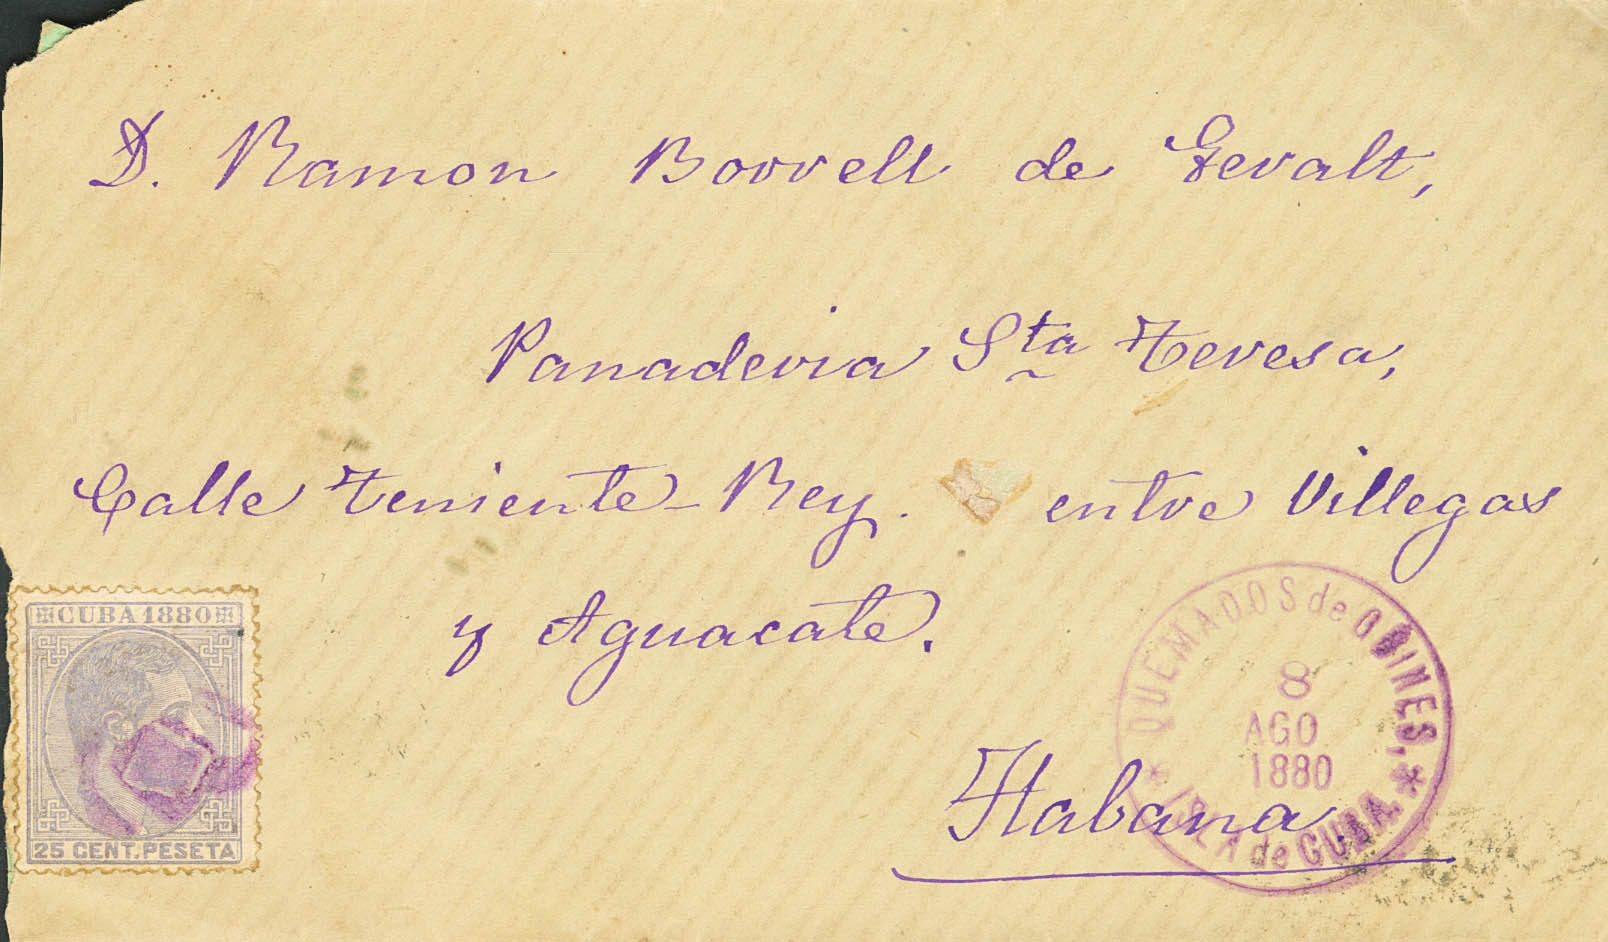 D. Ramon Borrell de Gevalt,
Panaderia Sta Teresa,
Calle Teniente-Rey. entre Villegas
y Aguacate.
Habana
CUBA 1880
25 CENT. PESETA
QUEMADOS de GÜINES,
8
AGO
1880
ISLA de CUBA.